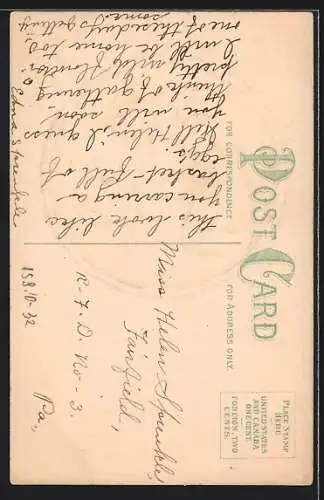 POST CARD
FOR CORRESPONDENCE
FOR ADDRESS ONLY.
PLACE STAMP
HERE
UNITED STATES
AND CANADA
ONE CENT.
FOREIGN TWO
CENTS.
This looks like
you carring a
basket full of
eggs.
Well Helen, I guess
you will soon
think of gathering
pretty wild flowers.
I will be home too,
one of these days getting
some.
Edna Sprenkle
Miss Helen Sprenkle,
Fairfield,
R. F. D. No. 3.
Pa.
158.10-32